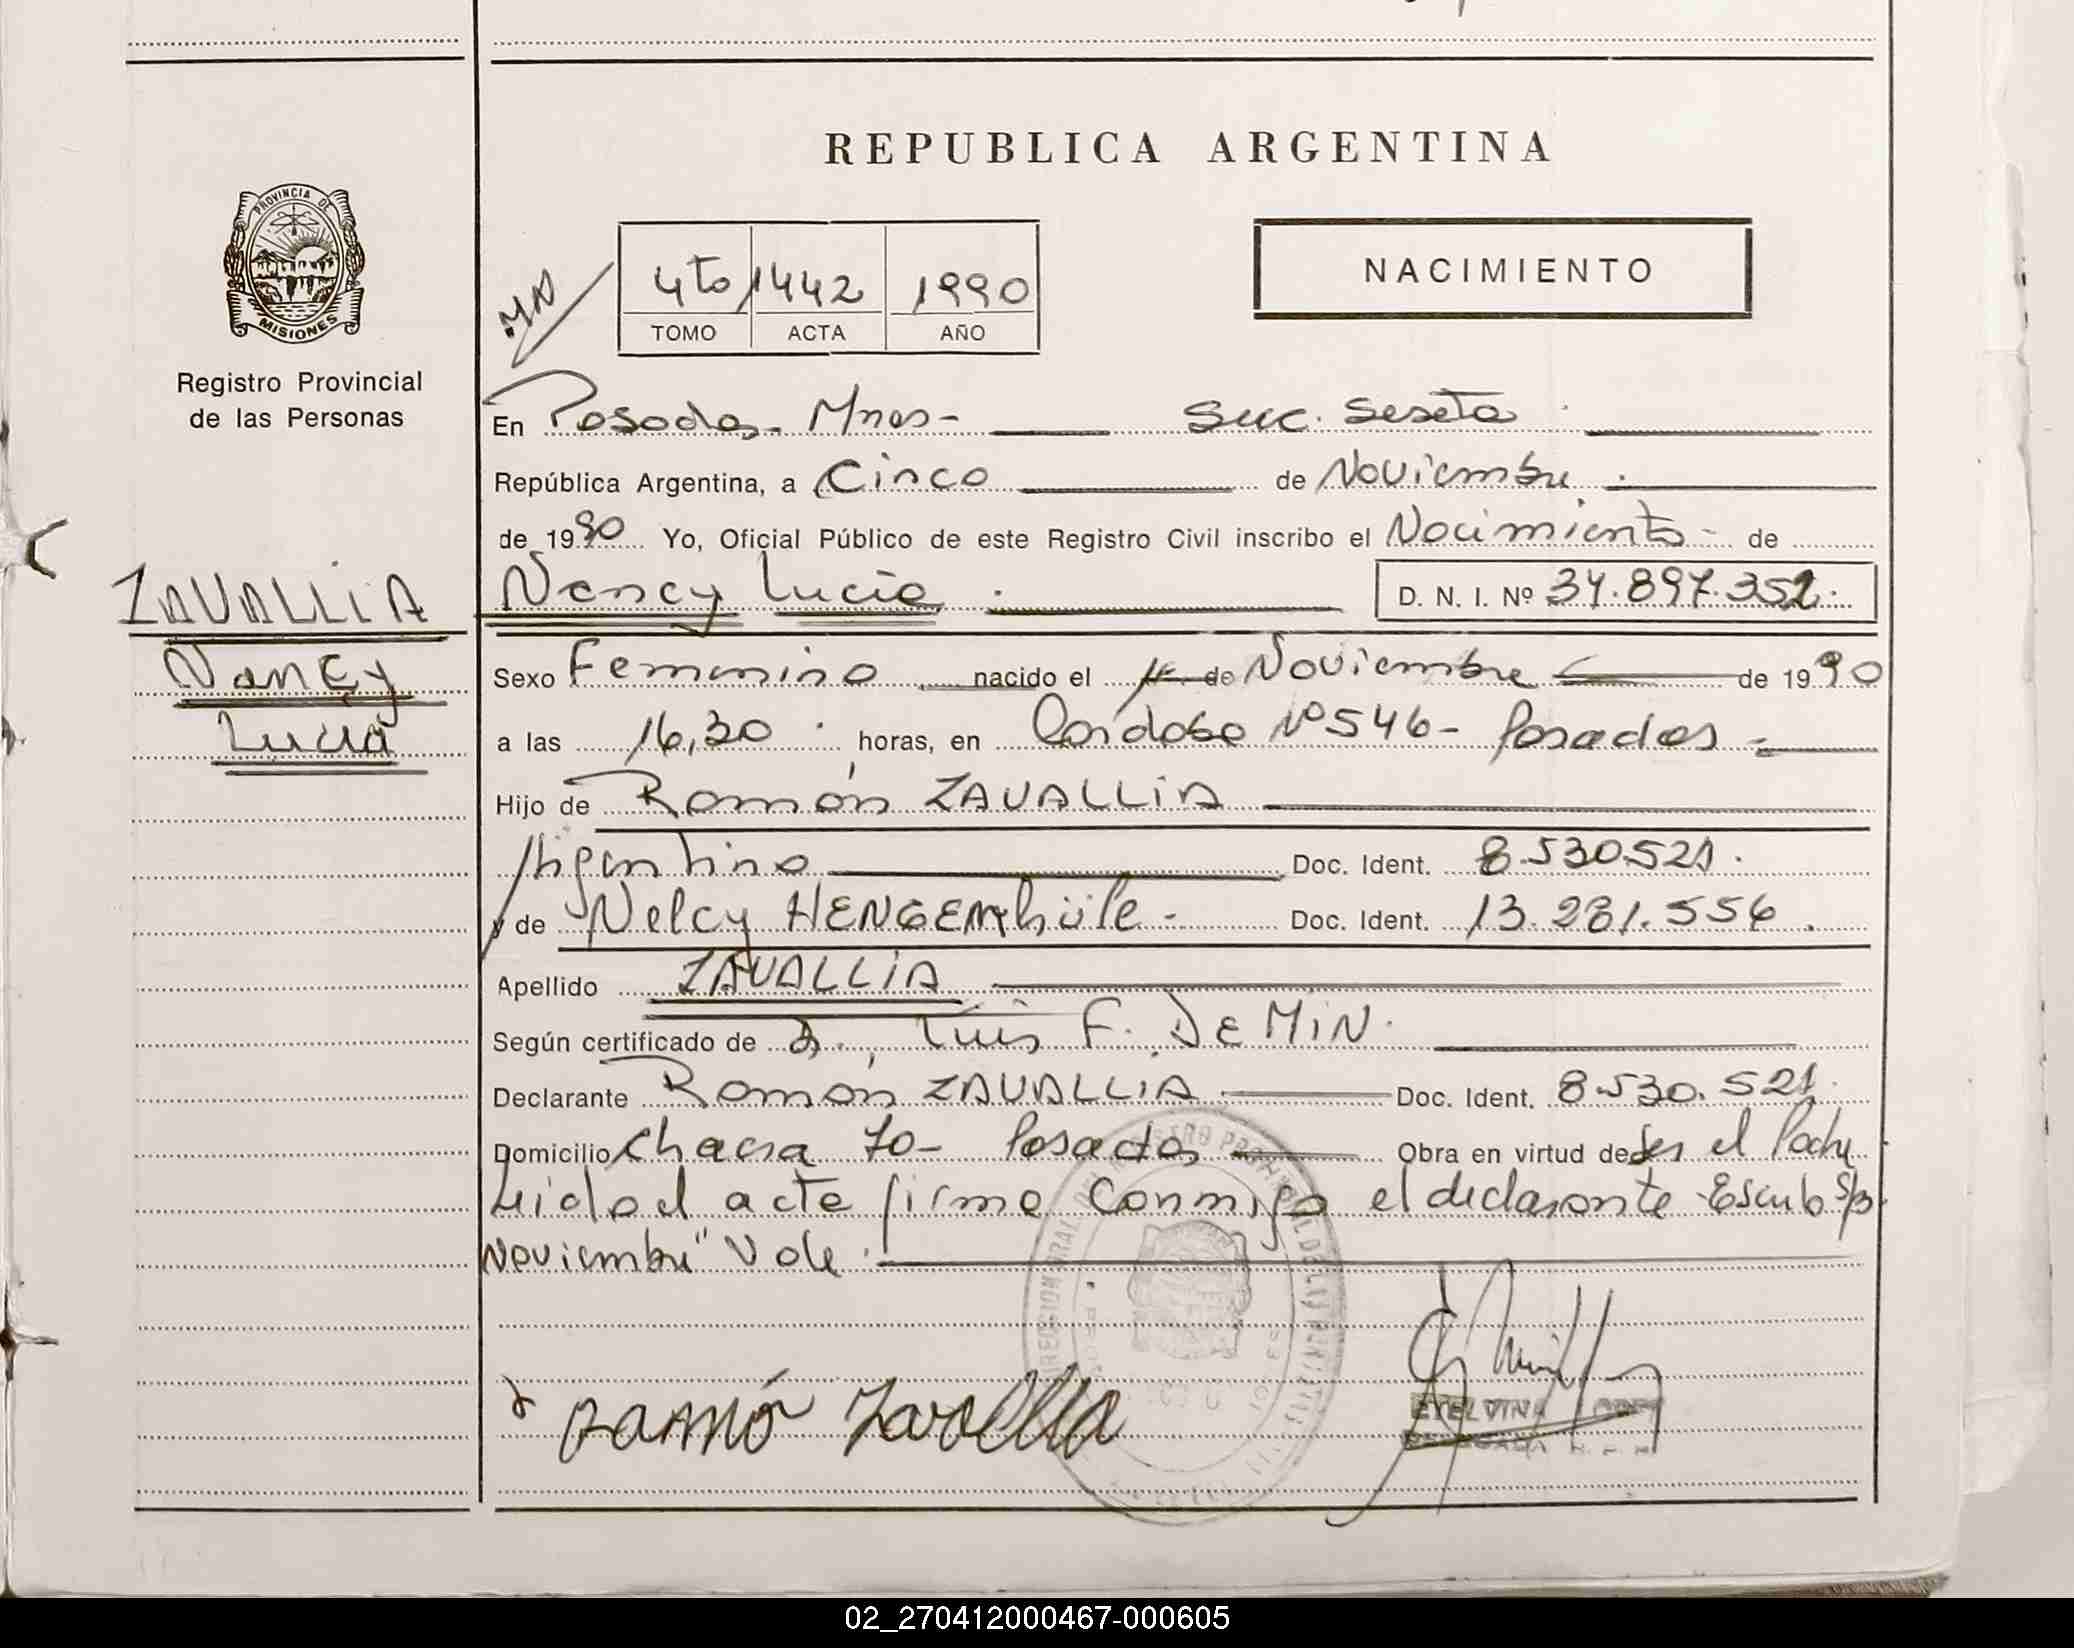 REPUBLICA ARGENTINA
PROVINCIA DE
MISIONES
Registro Provincial
de las Personas
4to 1442 1990
TOMO ACTA AÑO
NACIMIENTO
En Posadas - Mnes - Suc. Sexta
República Argentina, a Cinco de Noviembre
de 1990 Yo, Oficial Público de este Registro Civil inscribo el Nacimiento - de
ZAVALLIA
Nancy Lucia
D. N. I. Nº 34.897.352.
Nancy
Lucia
Sexo Femenino nacido el 1º de Noviembre de 1990
a las 16,30 horas, en Cordoba Nº 546 - Posadas -
Hijo de Ramón ZAVALLIA
Argentino Doc. Ident. 8.530.521.
y de Nelcy HENGEMhüle - Doc. Ident. 13.281.556.
Apellido ZAVALLIA
Según certificado de Dr. Luis F. De MiN.
Declarante Ramón ZAVALLIA Doc. Ident. 8.530.521.
Domicilio Chacra 70 - Posadas Obra en virtud de Ser el Padre
Leida el acta firma conmigo el declarante - Escrito S/r
Noviembre" Vale.
Ramón Zavallia
ETELVINA
02_270412000467-000605